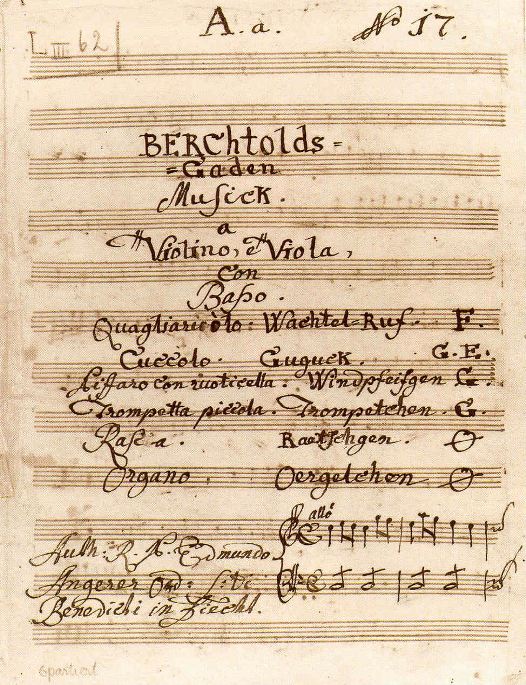 A. a. No 17.
L III 62
BERChtolds =
= Gaden
Musick.
a
Violino, è Viola,
Con
Baßo.
Quagliariçolo: Wachtel-Ruf. F.
Cuccolo. Guguck. G. E.
Zifaro con ruoticella. Windpfeifgen G.
Trompetta piccola. Trompetchen. G.
Raetschgen.
Organo. Oergelchen
allo
Auth: R. P. Edmundo
Angerer Ord: S:ti
Benedicti in Fiecht.